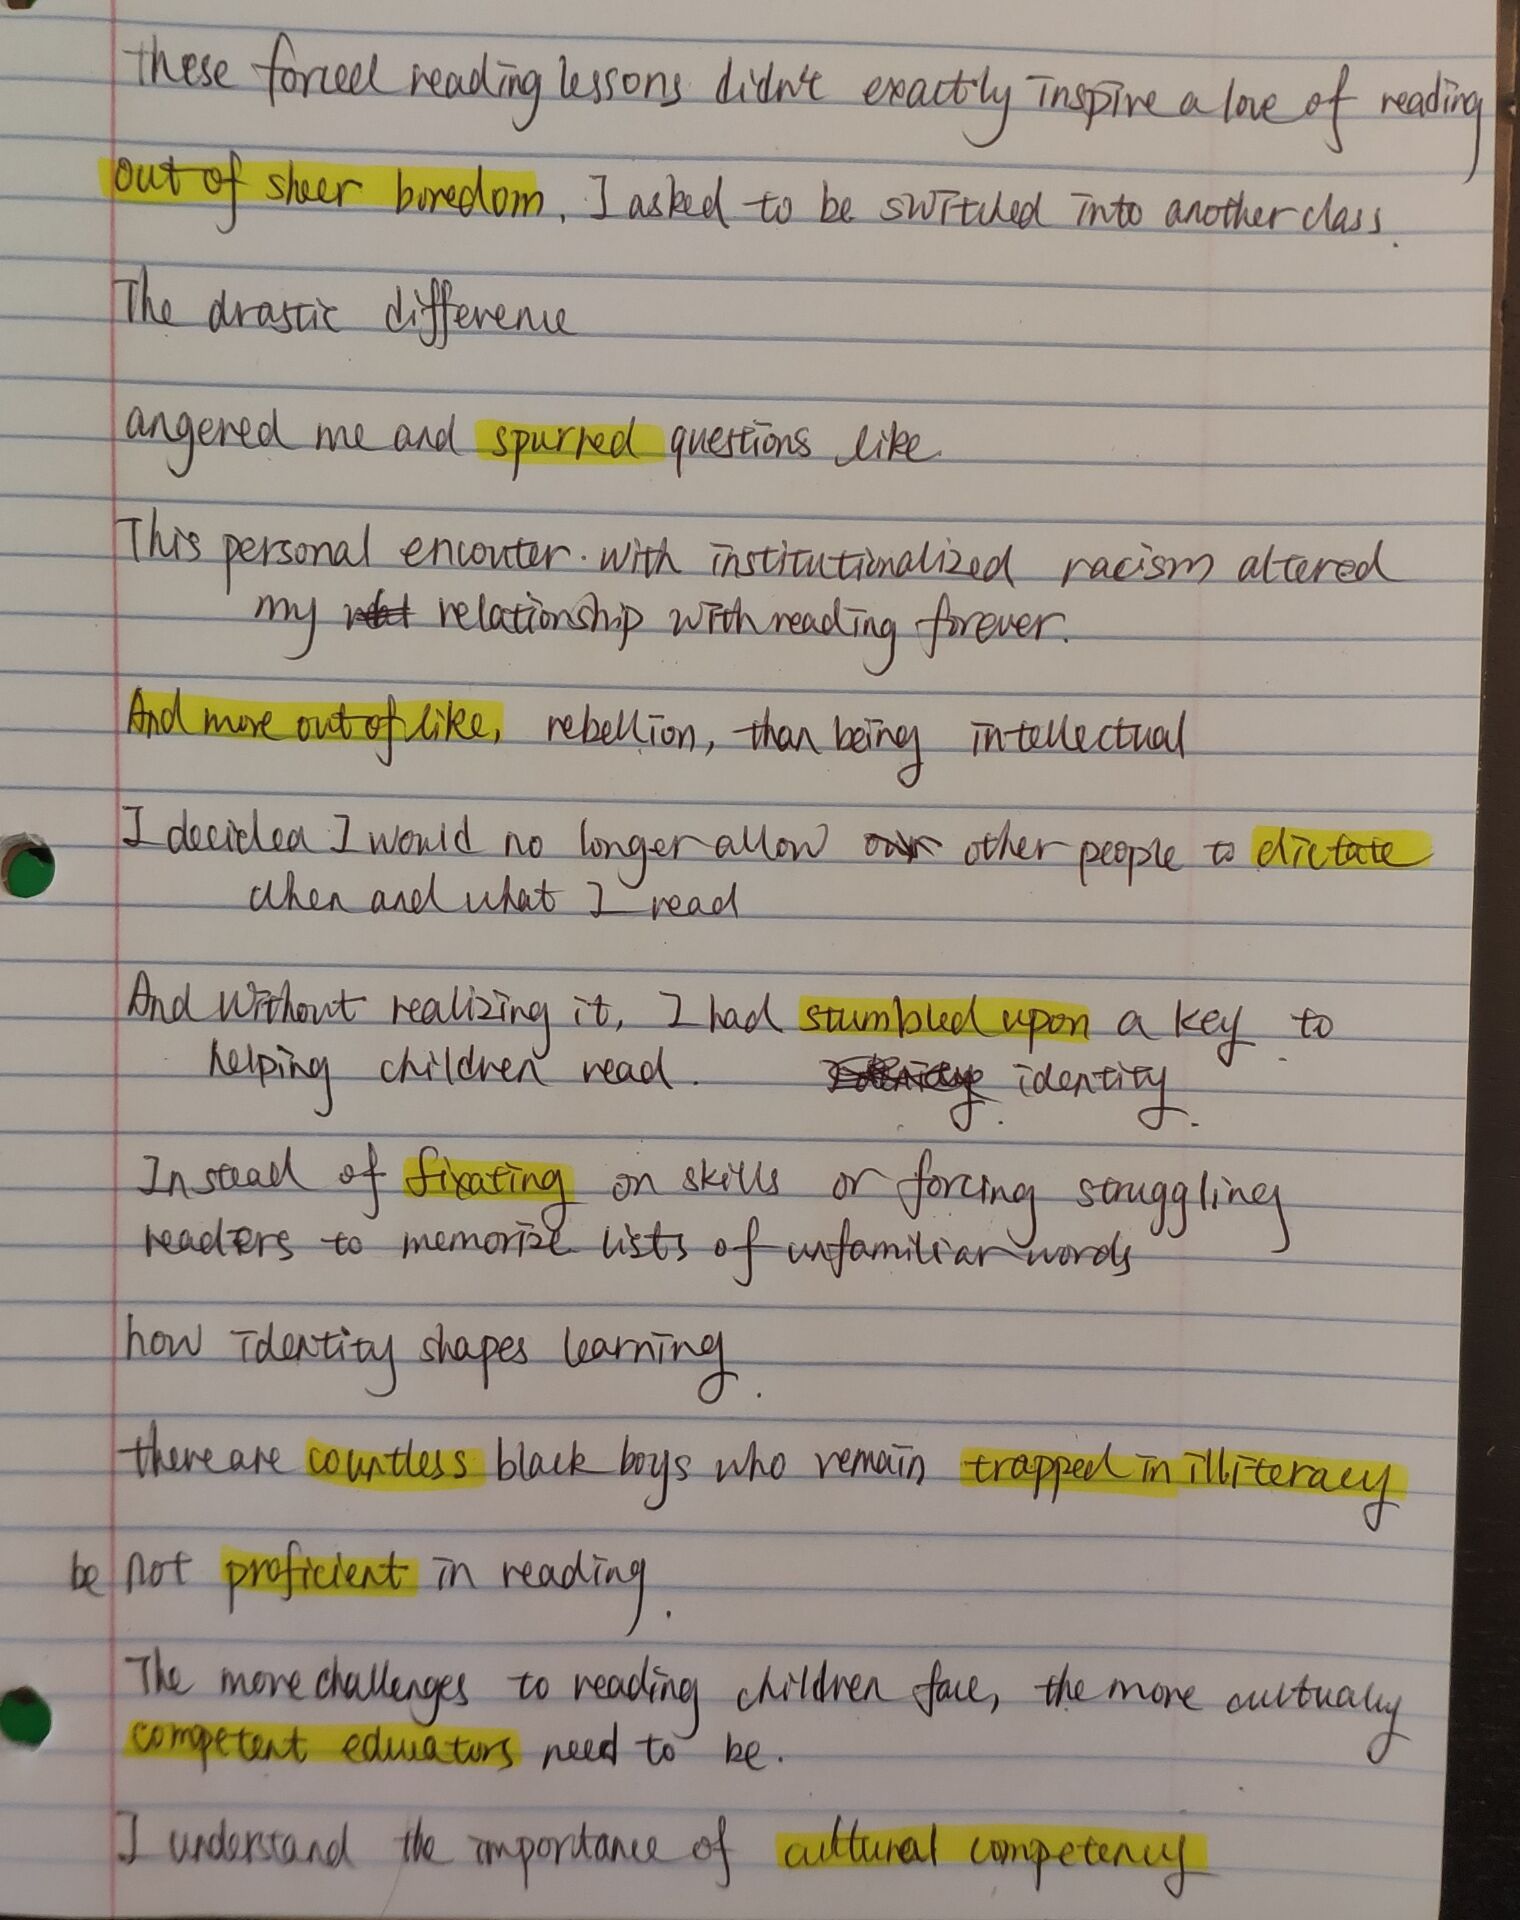 these forced reading lessons didn't exactly inspire a love of reading
out of sheer boredom, I asked to be switched into another class.
The drastic difference
angered me and spurred questions like
This personal encouter with institutionalized racism altered
my relationship with reading forever.
And more out of like, rebellion, than being intellectual
I decided I would no longer allow other people to dictate
when and what I read
And without realizing it, I had stumbled upon a key to
helping children read. identity.
Instead of fixating on skills or forcing struggling
readers to memorize lists of unfamiliar words
how identity shapes learning.
there are countless black boys who remain trapped in illiteracy
be not proficient in reading.
The more challenges to reading children face, the more culturally
competent educators need to be.
I understand the importance of cultural competency